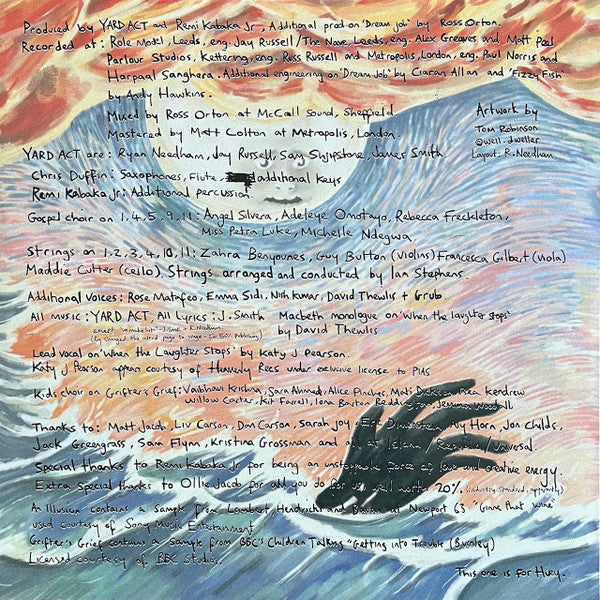 Produced by YARD ACT and Remi Kabaka Jr, Additional prod on 'Dream job' by Ross Orton.
Recorded at: Role Model, Leeds, eng. Jay Russell / The Nave, Leeds, eng. Alex Greaves and Matt Peel
Parlour Studios, Kettering, eng. Russ Russell and Metropolis, London, eng. Paul Norris and
Harpaal Sanghera. Additional engineering on 'Dream Job' by Ciaran Allan and 'Fizzy Fish'
by Andy Hawkins.
Mixed by Ross Orton at McCall Sound, Sheffield
Mastered by Matt Colton at Metropolis, London.
Artwork by
Tom Robinson
@well.dweller
Layout: R. Needham
YARD ACT are: Ryan Needham, Jay Russell, Sam Shjipstone, James Smith
Chris Duffin: Saxophones, Flute, additional keys
Remi Kabaka Jr: Additional percussion.
Gospel choir on 1, 4, 5, 9, 11: Angel Silvera, Adeleye Omotayo, Rebecca Freckleton,
Miss Petra Luke, Michelle Ndegwa.
Strings on 1, 2, 3, 4, 10, 11: Zahra Benyounes, Guy Button (violins) Francesca Gilbert (viola)
Maddie Cutter (cello). Strings arranged and conducted by Ian Stephens.
Additional Voices: Rose Matafeo, Emma Sidi, Nish Kumar, David Thewlis + Grub.
All music: YARD ACT, All Lyrics: J. Smith
Macbeth monologue on 'when the laughter stops'
by David Thewlis
Lead vocal on 'when the Laughter Stops' by Katy J Pearson.
Katy J Pearson appears courtesy of Heavenly Recs under exclusive license to PIAS
Kids choir on Grifter's Grief: Vaibhavi Krishna, Sara Ahmed, Alice Pinches, Kendrew
Willow Carter, Kit Farrell, Iona Barton
Thanks to: Matt Jacob, Liv Carson, Dan Carson, Sarah Joy, Eric Dimenstein, Horn, Jon Childs,
Jack Greengrass, Sam Flynn, Kristina Grossman and all at Island / Republic / Universal
Special thanks to Remi Kabaka Jr for being an unstoppable force of love and creative energy.
Extra special thanks to Ollie Jacob for all you do for us, well worth 20%. (industry standard, apparently)
An Illusion contains a sample from Lambert Hendricks and Bavan at Newport 63 "Gimme that wine"
used courtesy of Sony Music Entertainment
Grifter's Grief contains a sample from BBC's Children Talking "Getting into Trouble (Burnley)
Licensed courtesy of BBC Studios.
This one is for Huey.